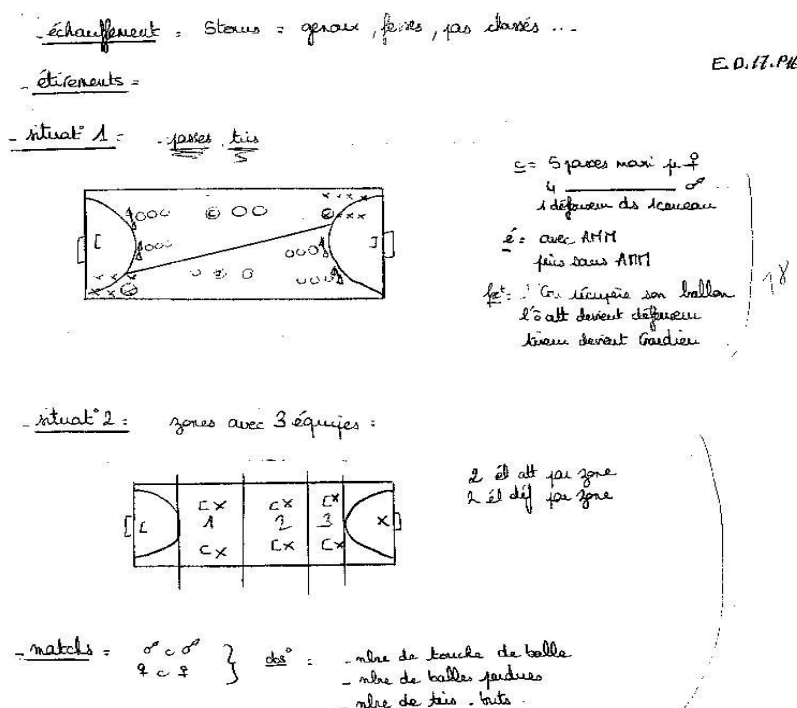 - échauffement = Sterno = genoux, fesses, pas chassés ...
E.D.17.P16
- étirements =
- situat° 1 = - passes tirs
c = 5 passes maxi pr ♀
4 ——— ♂
1 défenseur ds 1 couloir
é = avec AMM
puis sans AMM
récupère son ballon
l'° att devient défenseur
tireur devient Gardien
- situat° 2 = zones avec 3 équipes :
2 él att par zone
2 él déf par zone
C X C X C X
1 2 3 X
C X C X C X
- matchs = ♂ c ♂
♀ c ♀ } obs° = - nbre de touche de balle
- nbre de balles perdues
- nbre de tirs . buts .